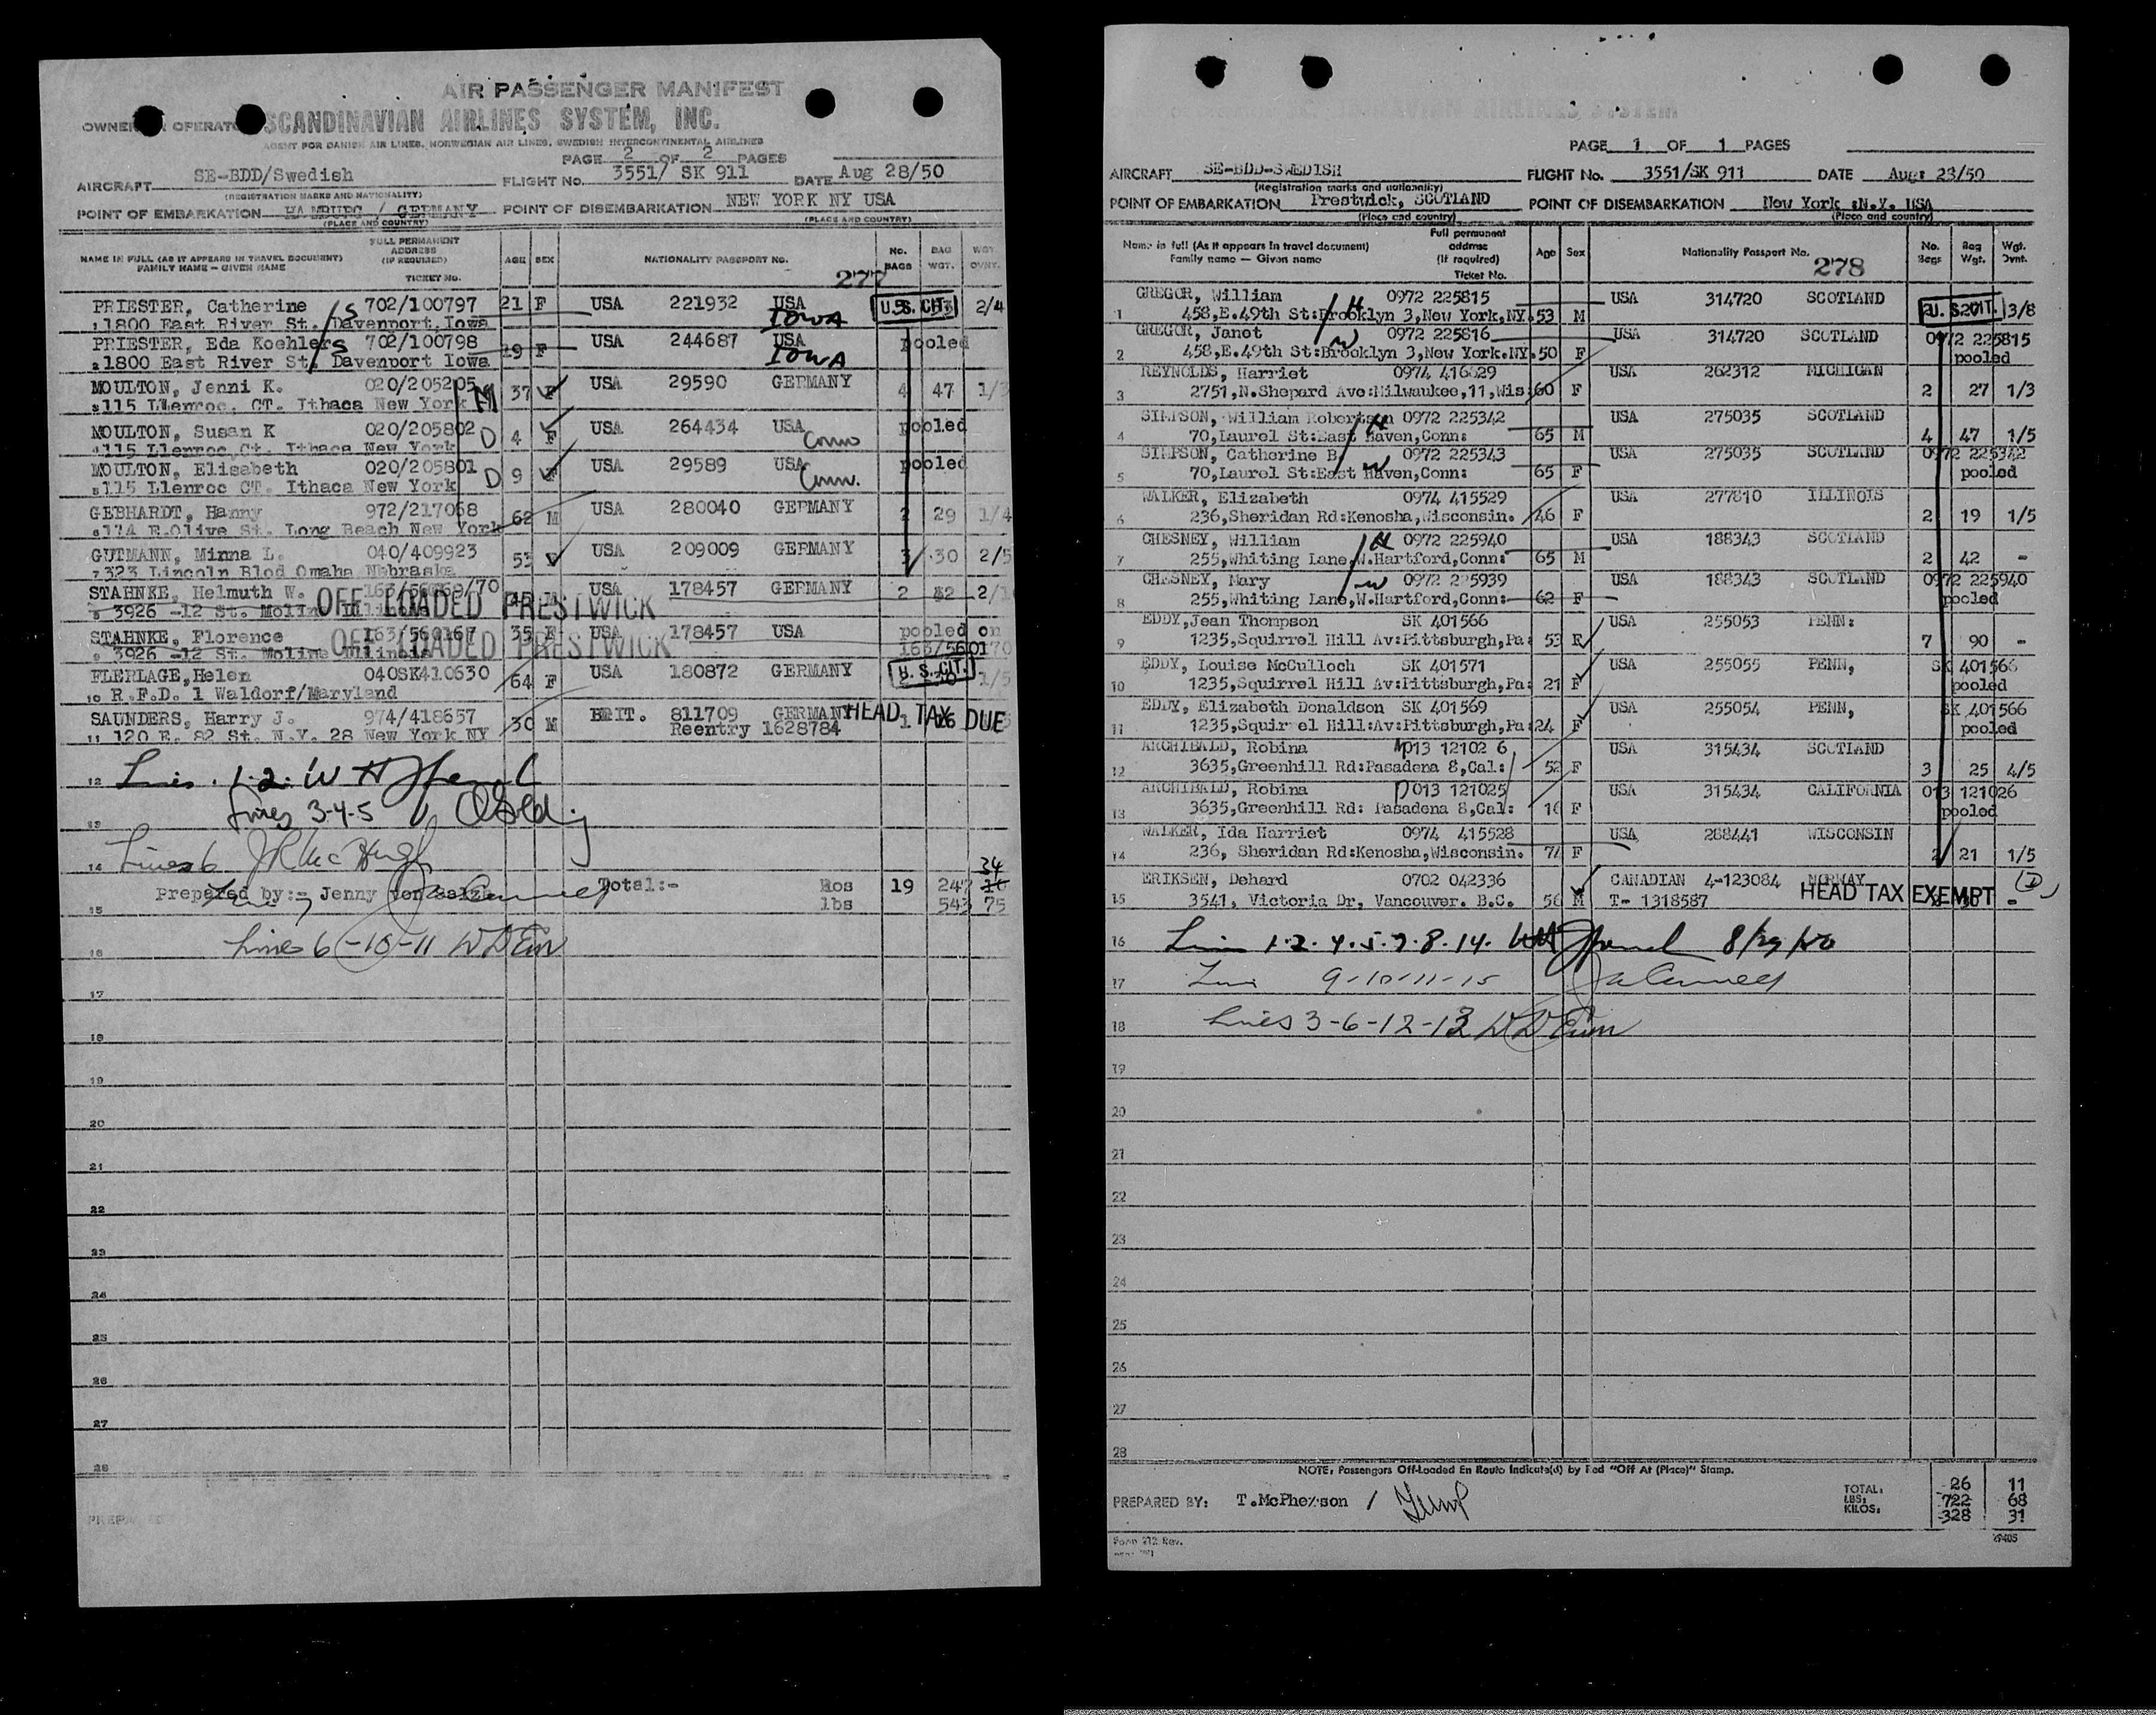 AIR PASSENGER MANIFEST
SCANDINAVIAN AIRLINES SYSTEM, INC.
AGENT FOR DANISH AIR LINES, NORWEGIAN AIR LINES, SWEDISH INTERCONTINENTAL AIRLINES
PAGE 2 OF 2 PAGES
AIRCRAFT SE-BDD/Swedish FLIGHT No. 3551/ SK 911 DATE Aug 28/50
(REGISTRATION MARKS AND NATIONALITY)
POINT OF EMBARKATION HAMBURG / GERMANY POINT OF DISEMBARKATION NEW YORK NY USA
(PLACE AND COUNTRY) (PLACE AND COUNTRY)
NAME IN FULL (AS IT APPEARS IN TRAVEL DOCUMENT) FAMILY NAME – GIVEN NAME FULL PERMANENT ADDRESS (IF REQUIRED) TICKET No. AGE SEX NATIONALITY PASSPORT No. No. BAGS BAG WGT. WGT. OVNT.
277
PRIESTER, Catherine 702/100797 21 F USA 221932 USA U.S. CIT. 2/4
1 1800 East River St. Davenport.Iowa IOWA
PRIESTER, Eda Koehlers 702/100798 19 F USA 244687 USA pooled
2 1800 East River St. Davenport Iowa IOWA
MOULTON, Jenni K. 020/205205 M 37 F USA 29590 GERMANY 4 47 1/3
3 115 Llenroc. CT. Ithaca New York
MOULTON, Susan K 020/205802 D 4 F USA 264434 USA pooled
4 115 Llenroc Ct. Ithaca New York Conn
MOULTON, Elisabeth 020/205801 D 9 F USA 29589 USA pooled
5 115 Llenroc CT. Ithaca New York Conn.
GEBHARDT, Hanny 972/217068 62 M USA 280040 GERMANY 2 29 1/4
6 174 E.Olive St. Long Beach New York
GUTMANN, Minna L. 040/409923 53 USA 209009 GERMANY 3 30 2/5
7 323 Lincoln Blod Omaha Nebraska
STAHNKE, Helmuth W. USA 178457 GERMANY 2
8 3926 -12 St. Moline Illinois OFF LOADED PRESTWICK
STAHNKE, Florence 163/560167 35 F USA 178457 USA pooled on
9 3926 -12 St. Moline Illinois OFF LOADED PRESTWICK
FLERLAGE,Helen 040SK410630 64 F USA 180872 GERMANY U.S.CIT. 1/5
10 R.F.D. 1 Waldorf/Maryland
SAUNDERS, Harry J. 974/418657 30 M BRIT. 811709 GERMANY HEAD TAX DUE
11 120 E. 82 St. N.Y. 28 New York NY Reentry 1628784
12 Lines 1.2.
13 Lines 3-4-5
14 Lines 6 J R McHugh
34
Prepared by:- Jenny Total:- Kos 19 247
15 lbs 543 75
16 Lines 6-10-11
17
18
19
20
21
22
23
24
25
26
27
28
PAGE 1 OF 1 PAGES
AIRCRAFT SE-BDD-SWEDISH FLIGHT No. 3551/SK 911 DATE Aug: 23/50
(Registration marks and nationality)
POINT OF EMBARKATION Prestwick, SCOTLAND POINT OF DISEMBARKATION New York :N.Y. USA
(Place and country) (Place and country)
Name in full (As it appears in travel document) Family name — Given name Full permanent address (if required) Ticket No. Age Sex Nationality Passport No. No. Bags Bag Wgt. Wgt. Ovnt.
278
GREGOR, William 0972 225815 USA 314720 SCOTLAND U. S. CIT. 3/8
1 458,E.49th St:Brooklyn 3,New York,NY. 53 M
GREGOR, Janet 0972 225816 USA 314720 SCOTLAND 0972 225815
2 458,E.49th St:Brooklyn 3,New York.NY. 50 F pooled
REYNOLDS, Harriet 0974 416629 USA 262312 MICHIGAN
3 2751,N.Shepard Ave:Milwaukee,11,Wis: 60 F 2 27 1/3
SIMPSON, William Robertson 0972 225342 USA 275035 SCOTLAND
4 70,Laurel St:East Haven,Conn: 65 M 4 47 1/5
SIMPSON, Catherine B. 0972 225343 USA 275035 SCOTLAND 0972 225342
5 70,Laurel St:East Haven,Conn: 65 F pooled
WALKER, Elizabeth 0974 415529 USA 277810 ILLINOIS
6 236,Sheridan Rd:Kenosha,Wisconsin. 46 F 2 19 1/5
CHESNEY, William 0972 225940 USA 188343 SCOTLAND
7 255,Whiting Lane,W.Hartford,Conn: 65 M 2 42 -
CHESNEY, Mary 0972 225939 USA 188343 SCOTLAND 0972 225940
8 255,Whiting Lane,W.Hartford,Conn: 62 F pooled
EDDY,Jean Thompson SK 401566 USA 255053 PENN:
9 1235,Squirrel Hill Av:Pittsburgh,Pa: 53 F 7 90 -
EDDY, Louise McCulloch SK 401571 USA 255055 PENN, SK 401566
10 1235,Squirrel Hill Av:Pittsburgh,Pa: 21 F pooled
EDDY, Elizabeth Donaldson SK 401569 USA 255054 PENN, SK 401566
11 1235,Squir el Hill:Av:Pittsburgh,Pa: 24 F pooled
ARCHIBALD, Robina 013 12102 6 USA 315434 SCOTLAND
12 3635,Greenhill Rd:Pasadena 8,Cal: 52 F 3 25 4/5
ARCHIBALD, Robina 013 121025 USA 315434 CALIFORNIA 013 121026
13 3635,Greenhill Rd: Pasadena 8,Cal: F pooled
WALKER, Ida Harriet 0974 415528 USA 288441 WISCONSIN
14 236, Sheridan Rd:Kenosha,Wisconsin. F 2 21 1/5
ERIKSEN, Dehard 0702 042336 CANADIAN 4-123084 NORWAY
15 3541, Victoria Dr, Vancouver. B.C. M T- 1318587 HEAD TAX EXEMPT -
16 Lines 1.2.4.5.7.8.14. 8/29/50
17 9-10-11-15
18 Lines 3-6-12-13
19
20
21
22
23
24
25
26
27
28
NOTE: Passengers Off-Loaded En Route Indicate(d) by Red "Off At (Place)" Stamp.
PREPARED BY: T.McPherson /
TOTAL: 26 11
LBS: 722 68
KILOS: 328 31
Form 212 Rev.